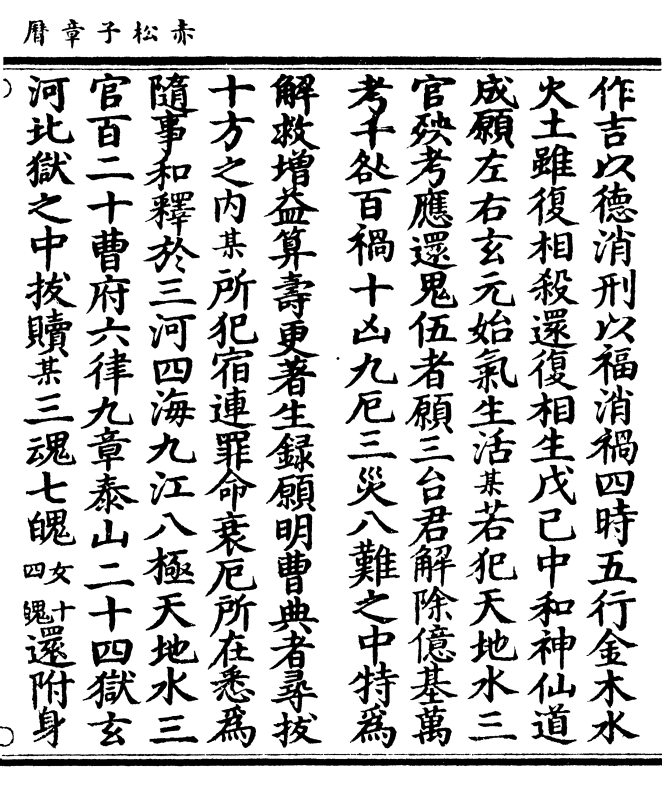 赤松子章曆
作吉以德消刑以福消禍四時五行金木水
火土雖復相殺還復相生戊己中和神仙道
成願左右玄元始氣生活某若犯天地水三
官殃考應還鬼伍者願三台君解除億基萬
考千敓百禍十凶九厄三災八難之中特為
解救增益算壽更著生録願明曹典者尋拔
十方之内某所犯宿連罪命衰厄所在悉為
隨事和釋於三河四海九江八極天地水三
官百二十曹府六律九章泰山二十四獄玄
河北獄之中拔贖某三魂七魄女十四魄還附身